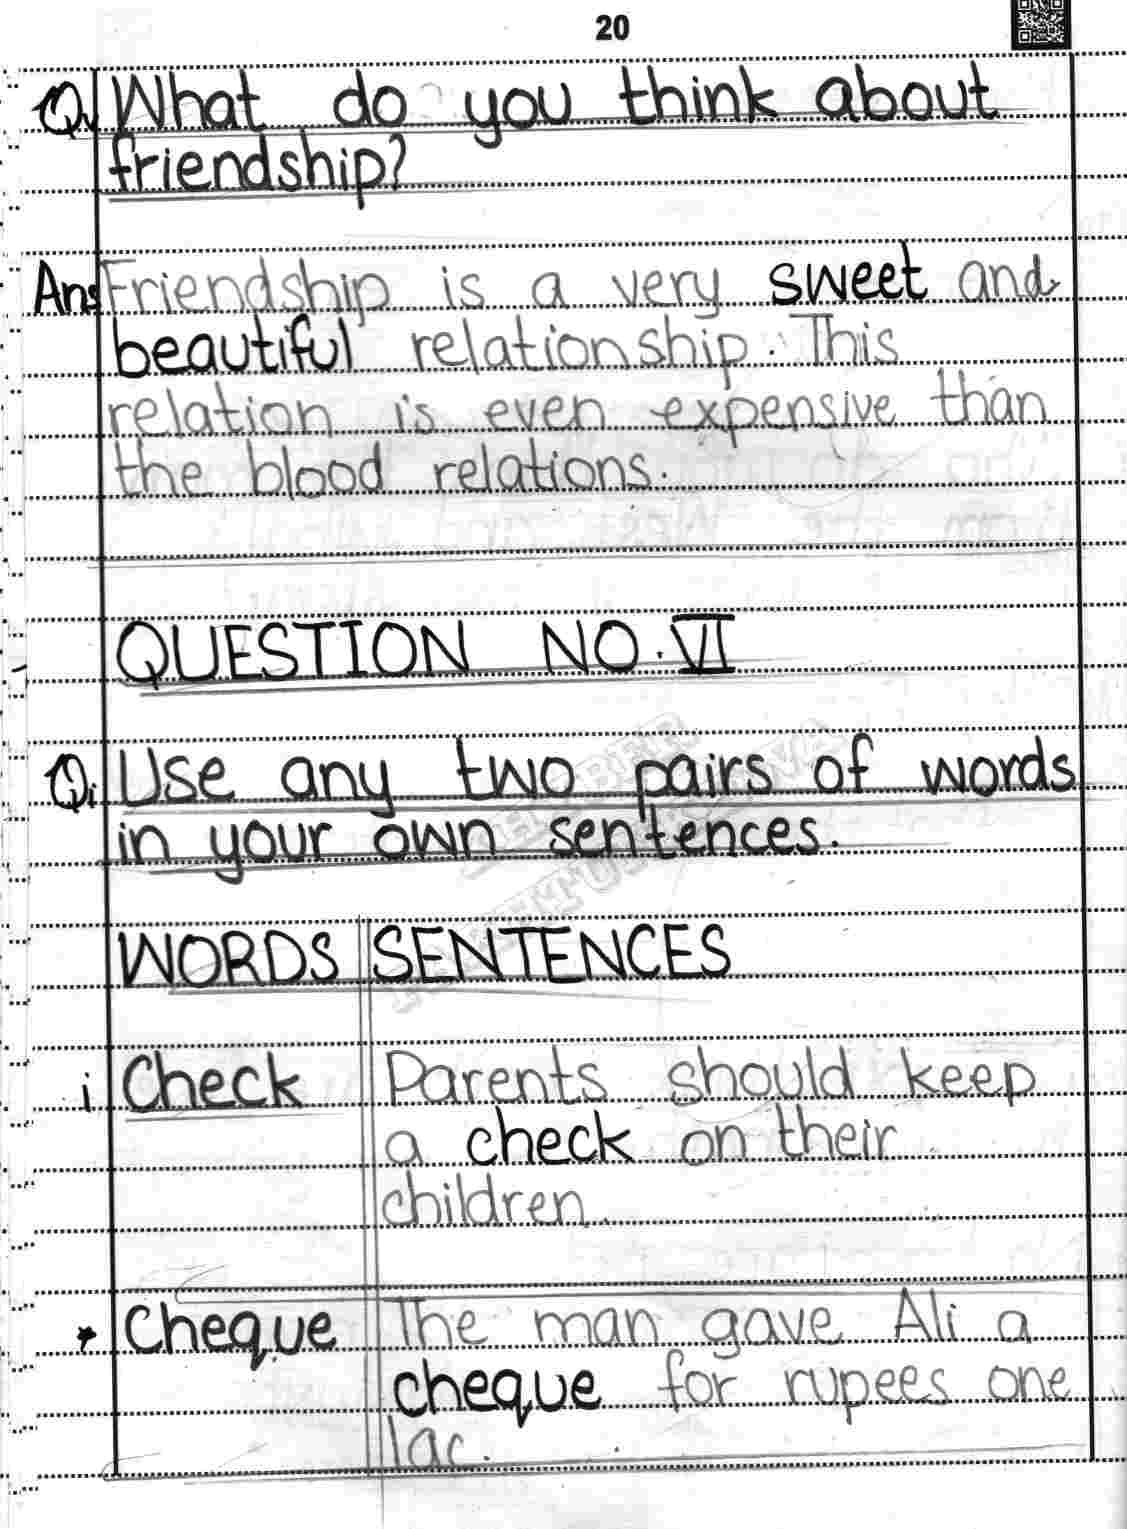 20
Q. What do you think about
friendship?
Ans Friendship is a very sweet and
beautiful relationship. This
relation is even expensive than
the blood relations.
QUESTION NO. VI
Q. Use any two pairs of words
in your own sentences.
WORDS SENTENCES
i Check Parents should keep
a check on their
children.
* Cheque The man gave Ali a
cheque for rupees one
lac.